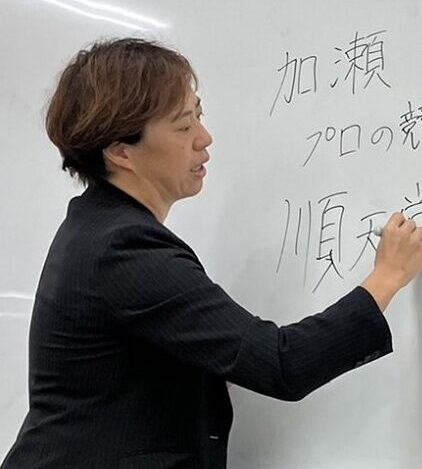 加瀬
プロの競
順天堂